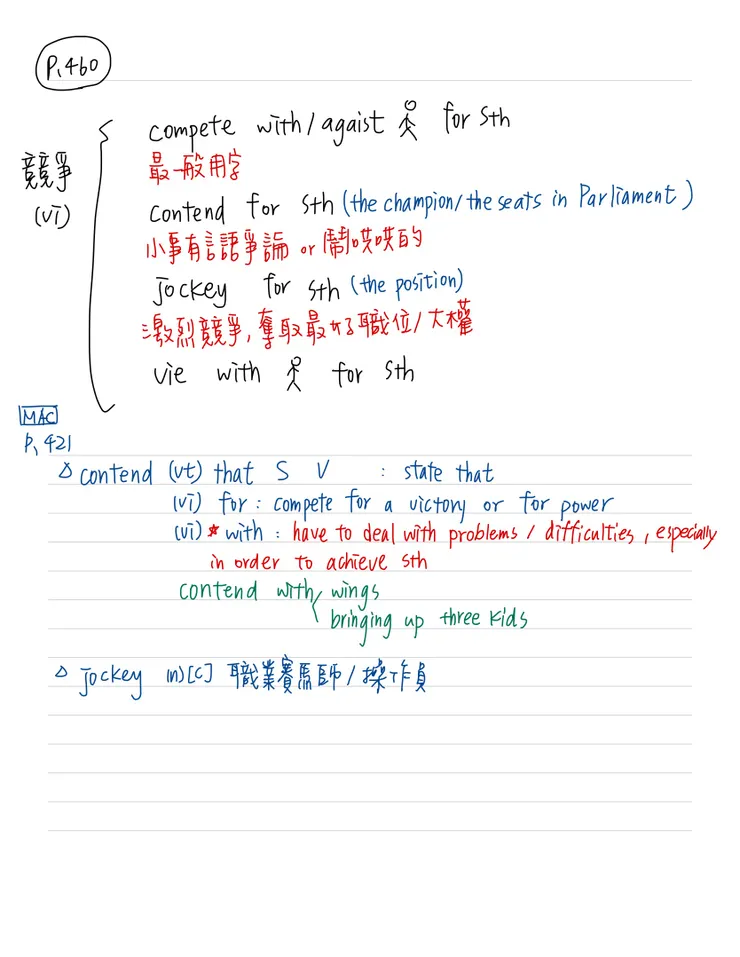 P.460
compete with/agaist 웃 for sth
最一般用字
競爭
(vi)
contend for sth (the champion/the seats in Parliament)
小事有言語爭論 or 鬧哄哄的
jockey for sth (the position)
激烈競爭,奪取最好職位/大權
vie with 웃 for sth
MAC
P.421
△ contend (vt) that S V : state that
(vi) for : compete for a victory or for power
(vi) * with : have to deal with problems / difficulties, especially
in order to achieve sth
contend with wings
bringing up three kids
△ jockey (n)[C] 職業賽馬師/操作員